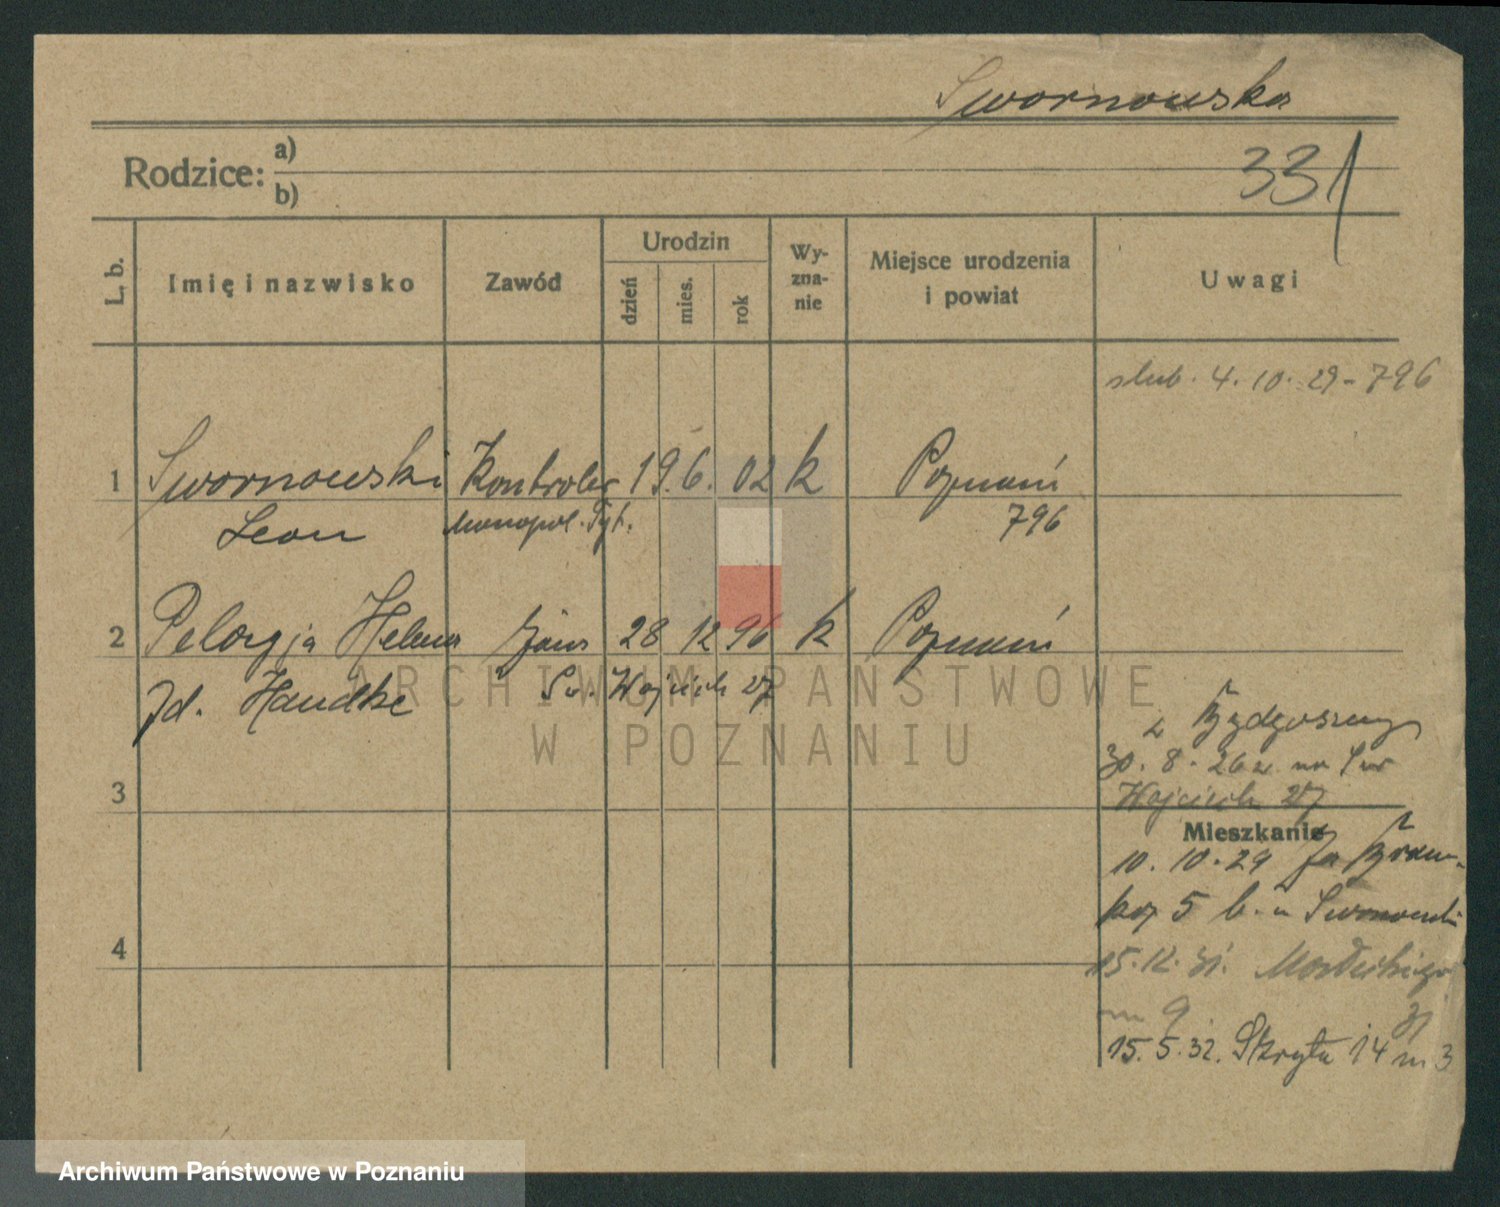 Swornowska
Rodzice: a)
b)
331
L. b.
Imię i nazwisko
Zawód
Urodzin
dzień
mies.
rok
Wy-
zna-
nie
Miejsce urodzenia
i powiat
Uwagi
slub. 4. 10. 29 - 796
1 Swornowski Kontroler 19. 6. 02 k Poznań
Leon Monopol. Tyt. 796
2 Pelagja Helena 28 12 96 k Poznań
zd. Handke Św. Wojciech 27
ARCHIWUM PAŃSTWOWE
W POZNANIU
z Bydgoszczy
30. 8. 26 z na Św
Wojciech 27
3
Mieszkanie
10. 10. 29
5 b. u Swornowski
4
15. 12. 31.
m 9
15. 5. 32. Skryta 14 m 3
Archiwum Państwowe w Poznaniu